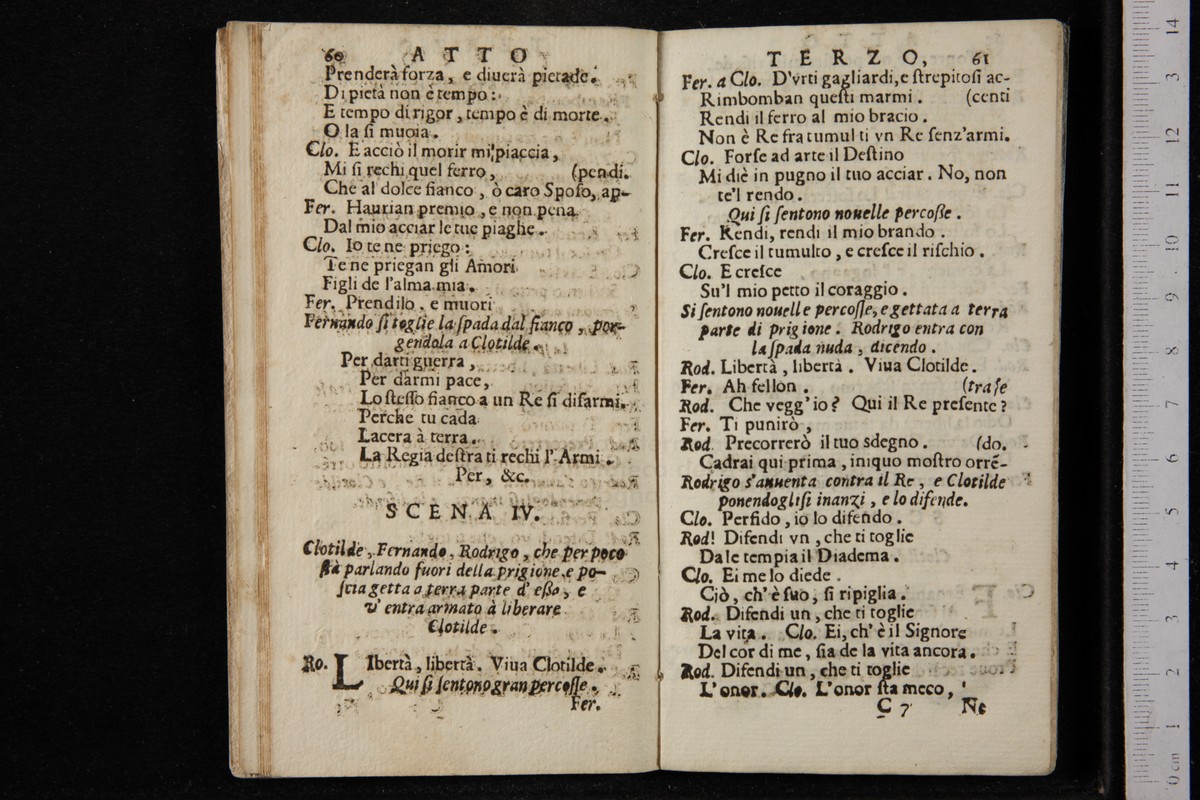 60 ATTO
Prenderà forza, e diuerà pietade.
Di pietà non è tempo:
E tempo di rigor, tempo è di morte.
O la si muoia.
Clo. E acciò il morir mi piaccia,
Mi si rechi quel ferro, (pendi.
Che al dolce fianco, ò caro Sposo, ap-
Fer. Haurian premio, e non pena
Dal mio acciar le tue piaghe.
Clo. Io te ne priego:
Te ne priegan gli Amori
Figli de l'alma mia.
Fer. Prendilo, e muori
Fernando si toglie la ſpada dal fianco, por-
gendola a Clotilde.
Per darti guerra,
Per darmi pace,
Lo ſteſſo fianco a un Re ſi diſarmi.
Perche tu cada
Lacera à terra.
La Regia deſtra ti rechi l'Armi.
Per, &c.
SCENA IV.
Clotilde, Fernando, Rodrigo, che per poco
ſtà parlando fuori della prigione, e po-
ſcia getta a terra parte d'eſſa, e
v'entra armato à liberare
Clotilde.
Ro. LIbertà, libertà. Viua Clotilde.
Qui ſi ſentono gran percoſſe.
Fer.
TERZO, 61
Fer. a Clo. D'vrti gagliardi, e ſtrepitoſi ac-
Rimbomban queſti marmi. (centi
Rendi il ferro al mio bracio.
Non è Re fra tumulti vn Re ſenz'armi.
Clo. Forſe ad arte il Deſtino
Mi diè in pugno il tuo acciar. No, non
te'l rendo.
Qui ſi ſentono nouelle percoſſe.
Fer. Rendi, rendi il mio brando.
Creſce il tumulto, e creſce il riſchio.
Clo. E creſce
Su'l mio petto il coraggio.
Si ſentono nouelle percoſſe, e gettata a terra
parte di prigione. Rodrigo entra con
la ſpada nuda, dicendo.
Rod. Libertà, libertà. Viua Clotilde.
Fer. Ah fellon. (tra ſe
Rod. Che vegg'io? Qui il Re preſente?
Fer. Ti punirò,
Rod. Precorrerò il tuo sdegno. (do.
Cadrai qui prima, iniquo moſtro orrẽ-
Rodrigo s'auuenta contra il Re, e Clotilde
ponendogliſi inanzi, e lo difende.
Clo. Perfido, io lo difendo.
Rod! Difendi vn, che ti toglie
Da le tempia il Diadema.
Clo. Ei me lo diede.
Ciò, ch'è ſuo, ſi ripiglia.
Rod. Difendi un, che ti toglie
La vita. Clo. Ei, ch'è il Signore
Del cor di me, ſia de la vita ancora.
Rod. Difendi un, che ti toglie
L'onor. Clo. L'onor ſta meco,
C 7 Ne
14
3
12
11
10
9
8
7
6
5
4
3
2
1
0 cm